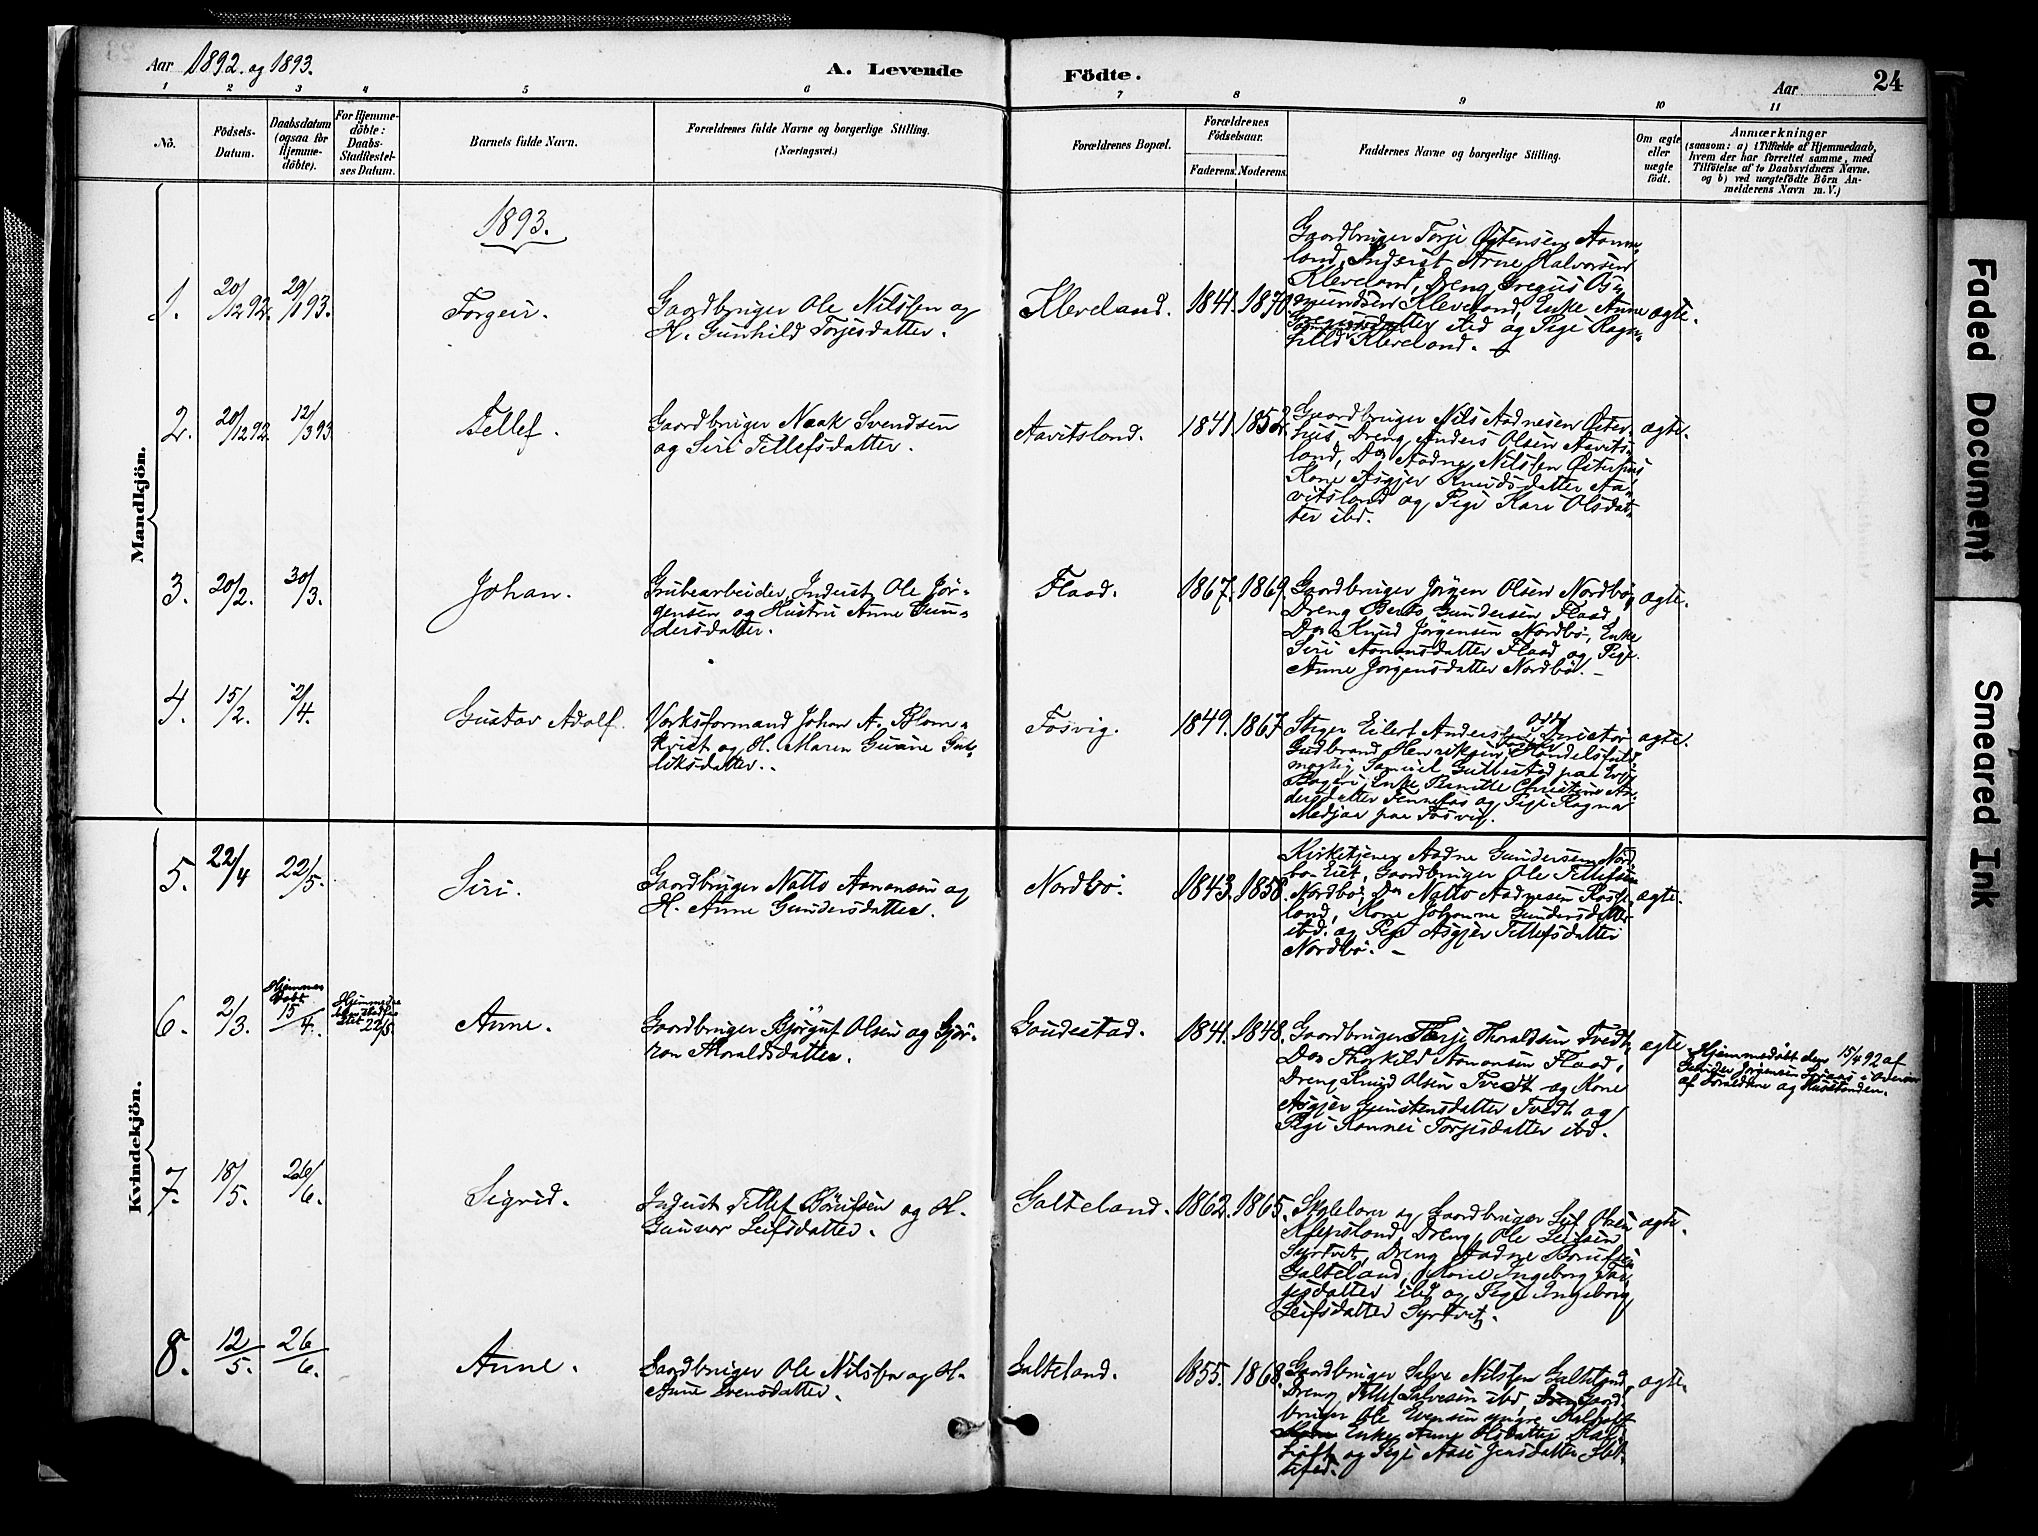 Aar 1892. og 1893.
A. Levende Födte.
Aar
24
1 2 3 4 5 6 7 8 9 10 11
Nö.
Födsels-
Datum.
Daabsdatum
(ogsaa for
Hjemme-
döbte).
For Hjemme-
döbte:
Daabs-
Stadfæstel-
ses Datum.
Barnets fulde Navn.
Forældrenes fulde Navne og borgerlige Stilling.
(Næringsvei.)
Forældrenes Bopæl.
Forældrenes
Födselsaar.
Faderens. Moderens.
Faddernes Navne og borgerlige Stilling.
Om ægte
eller
uægte
födt.
Anmærkninger
(saasom: a) i Tilfælde af Hjemmedaab,
hvem der har forrettet samme, med
Tilföielse af to Daabsvidners Navne.
og b) ved uægtefödte Börn An-
melderens Navn m. V.)
Mandkjön.
1893.
1. 20/12 92. 29/1 93. Torgeir.
Gaardbruger Ole Nilssen og
H. Gunhild Torjesdatter.
Kleveland. 1841. 1870.
Gaardbruger Torje Østensen Aamm-
land, Inderst Arne Halvorsen
Kleveland, Dreng Gregus
mundsen Kleveland, Enke Anne
Gregusdatter ibd og Pige Ragn-
hild Kleveland.
ægte.
2. 20/12 92. 12/3 93. Tellef.
Gaardbruger Naak Svendsen
og Siri Tellefsdatter.
Aavitsland. 1841. 1852.
Gaardbruger Nils Aadnesen Øster-
hus, Dreng Anders Olsen Aavits-
land, Do Aadne Nilssen Østerhus
Kone Asgjer Knudsdatter Aa-
vitsland og Pige Kari Olsdat-
ter ibd.
ægte.
3. 20/2. 30/3. Johan.
Grubearbeider, Inderst Ole Jør-
gensen og Hustru Anne Gun-
dersdatter.
Flaad. 1867. 1869.
Gaardbruger Jørgen Olsen Nordbø,
Dreng Berto Gundersen Flaad,
Do Knud Jørgensen Nordbø, Enke
Siri Aamonsdatter Flaad og Pige
Anne Jørgensdatter Nordbø.
ægte.
4. 15/2. 2/4. Gustav Adolf.
Værksformand Johan A. Blom-
kvist og H. Maren Gurine Gul-
liksdatter.
Fosvig. 1849. 1867.
Stiger Eilert Andersen,
Gudbrand Henriksen, Handelsfuld-
mægtig Samuel Gullestad paa
Enke Pernille Christine An-
dersdatter Fennefos og Pige Ragna
Medjaa paa Fosvig.
ægte.
Kvindekjön.
5. 22/4 22/5. Siri.
Gaardbruger Natto Aamonsen og
H. Anne Gundersdatter.
Nordbø. 1843. 1858.
Kirketjener Aadne Gundersen Nord-
bø Eiet, Gaardbruger Ole Tellefsen
Nordbø, Do Natto Aadnesen Rosse-
land, Kone Johanne Gundersdatter
ibd. og Pige Asgjer Tellefsdatter
Nordbø.
ægte.
6. 2/3. Hjemme-
døbt
15/4. 22/5 Anne.
Gaardbruger Bjørguf Olsen og Gjø-
ron Thoraldsdatter.
Gaudestad. 1841. 1848.
Gaardbruger Terje Thoraldsen Tvedt,
Do Thorkild Aamonsen Flaad,
Dreng Knud Olsen Tvedt og Kone
Asgjer Gunstensdatter Tvedt og
Pige Ronnei Torjesdatter ibd.
ægte
Hjemmedøbt den 15/4 92 af
Gunder Jørgensen
af Forældrene og Husstanden.
7. 18/5. 26/6. Sigrid.
Inderst Tellef Børuſsen og H.
Gunvor Leifsdatter.
Galteland. 1862. 1865.
Skolelærer og Gaardbruger Leif Olsen
Klepsland, Dreng Ole Leifsen
Syrtveit, Dreng Aadne Børufsen
Galteland, Kone Ingeborg Tor-
jesdatter ibd og Pige Ingeborg
Leifsdatter Syrtveit.
ægte.
8. 12/5. 26/6. Anne.
Gaardbruger Ole Nilssen og H.
Anne Evensdatter.
Galteland. 1855. 1868.
Gaardbruger Salve Nilssen Galteland,
Dreng Tellef Salvesen ibd, Gaard-
bruger Ole Evensen yngre
Enke Anne Olsdatter
og Pige Aase Jensdatter
ægte.
Faded Document
Smeared Ink